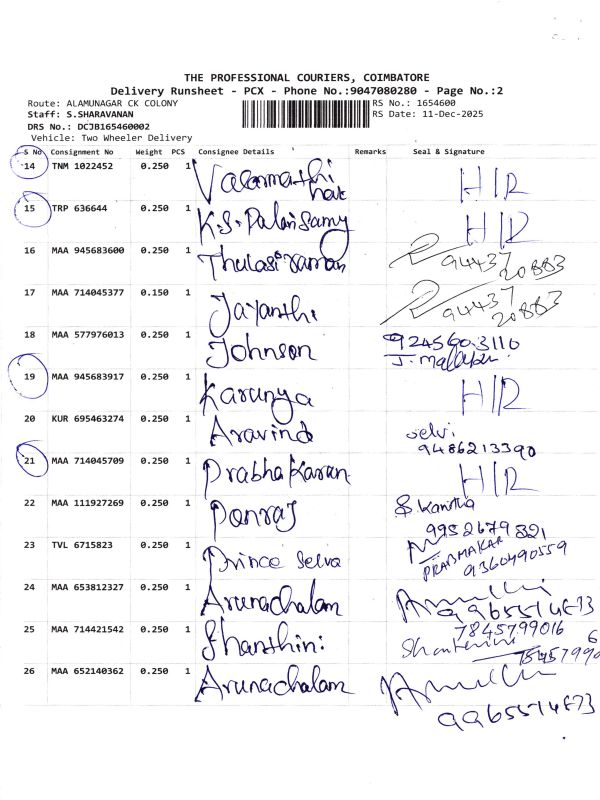 THE PROFESSIONAL COURIERS, COIMBATORE
Delivery Runsheet - PCX - Phone No.:9047080280 - Page No.:2
Route: ALAMUNAGAR CK COLONY
RS No.: 1654600
Staff: S.SHARAVANAN
RS Date: 11-Dec-2025
DRS No.: DCJB165460002
Vehicle: Two Wheeler Delivery
S No Consignment No Weight PCS Consignee Details Remarks Seal & Signature
14 TNM 1022452 0.250 1 Valarmathi H/R
15 TRP 636644 0.250 1 K.S. Palanisamy H/R
16 MAA 945683600 0.250 1 Thulasi raman 94437 20883
17 MAA 714045377 0.150 1 Jayanthi 94437 20883
18 MAA 577976013 0.250 1 Johnson 9245603110
19 MAA 945683917 0.250 1 Karunya H/R
20 KUR 695463274 0.250 1 Aravind selvi 9486213390
21 MAA 714045709 0.250 1 Prabha Karan H/R
22 MAA 111927269 0.250 1 Ponraj
23 TVL 6715823 0.250 1 Prince Selva PRABHAKAR 9360490559
24 MAA 653812327 0.250 1 Arunachalam
25 MAA 714421542 0.250 1 Shanthini 7845799016
26 MAA 652140362 0.250 1 Arunachalam